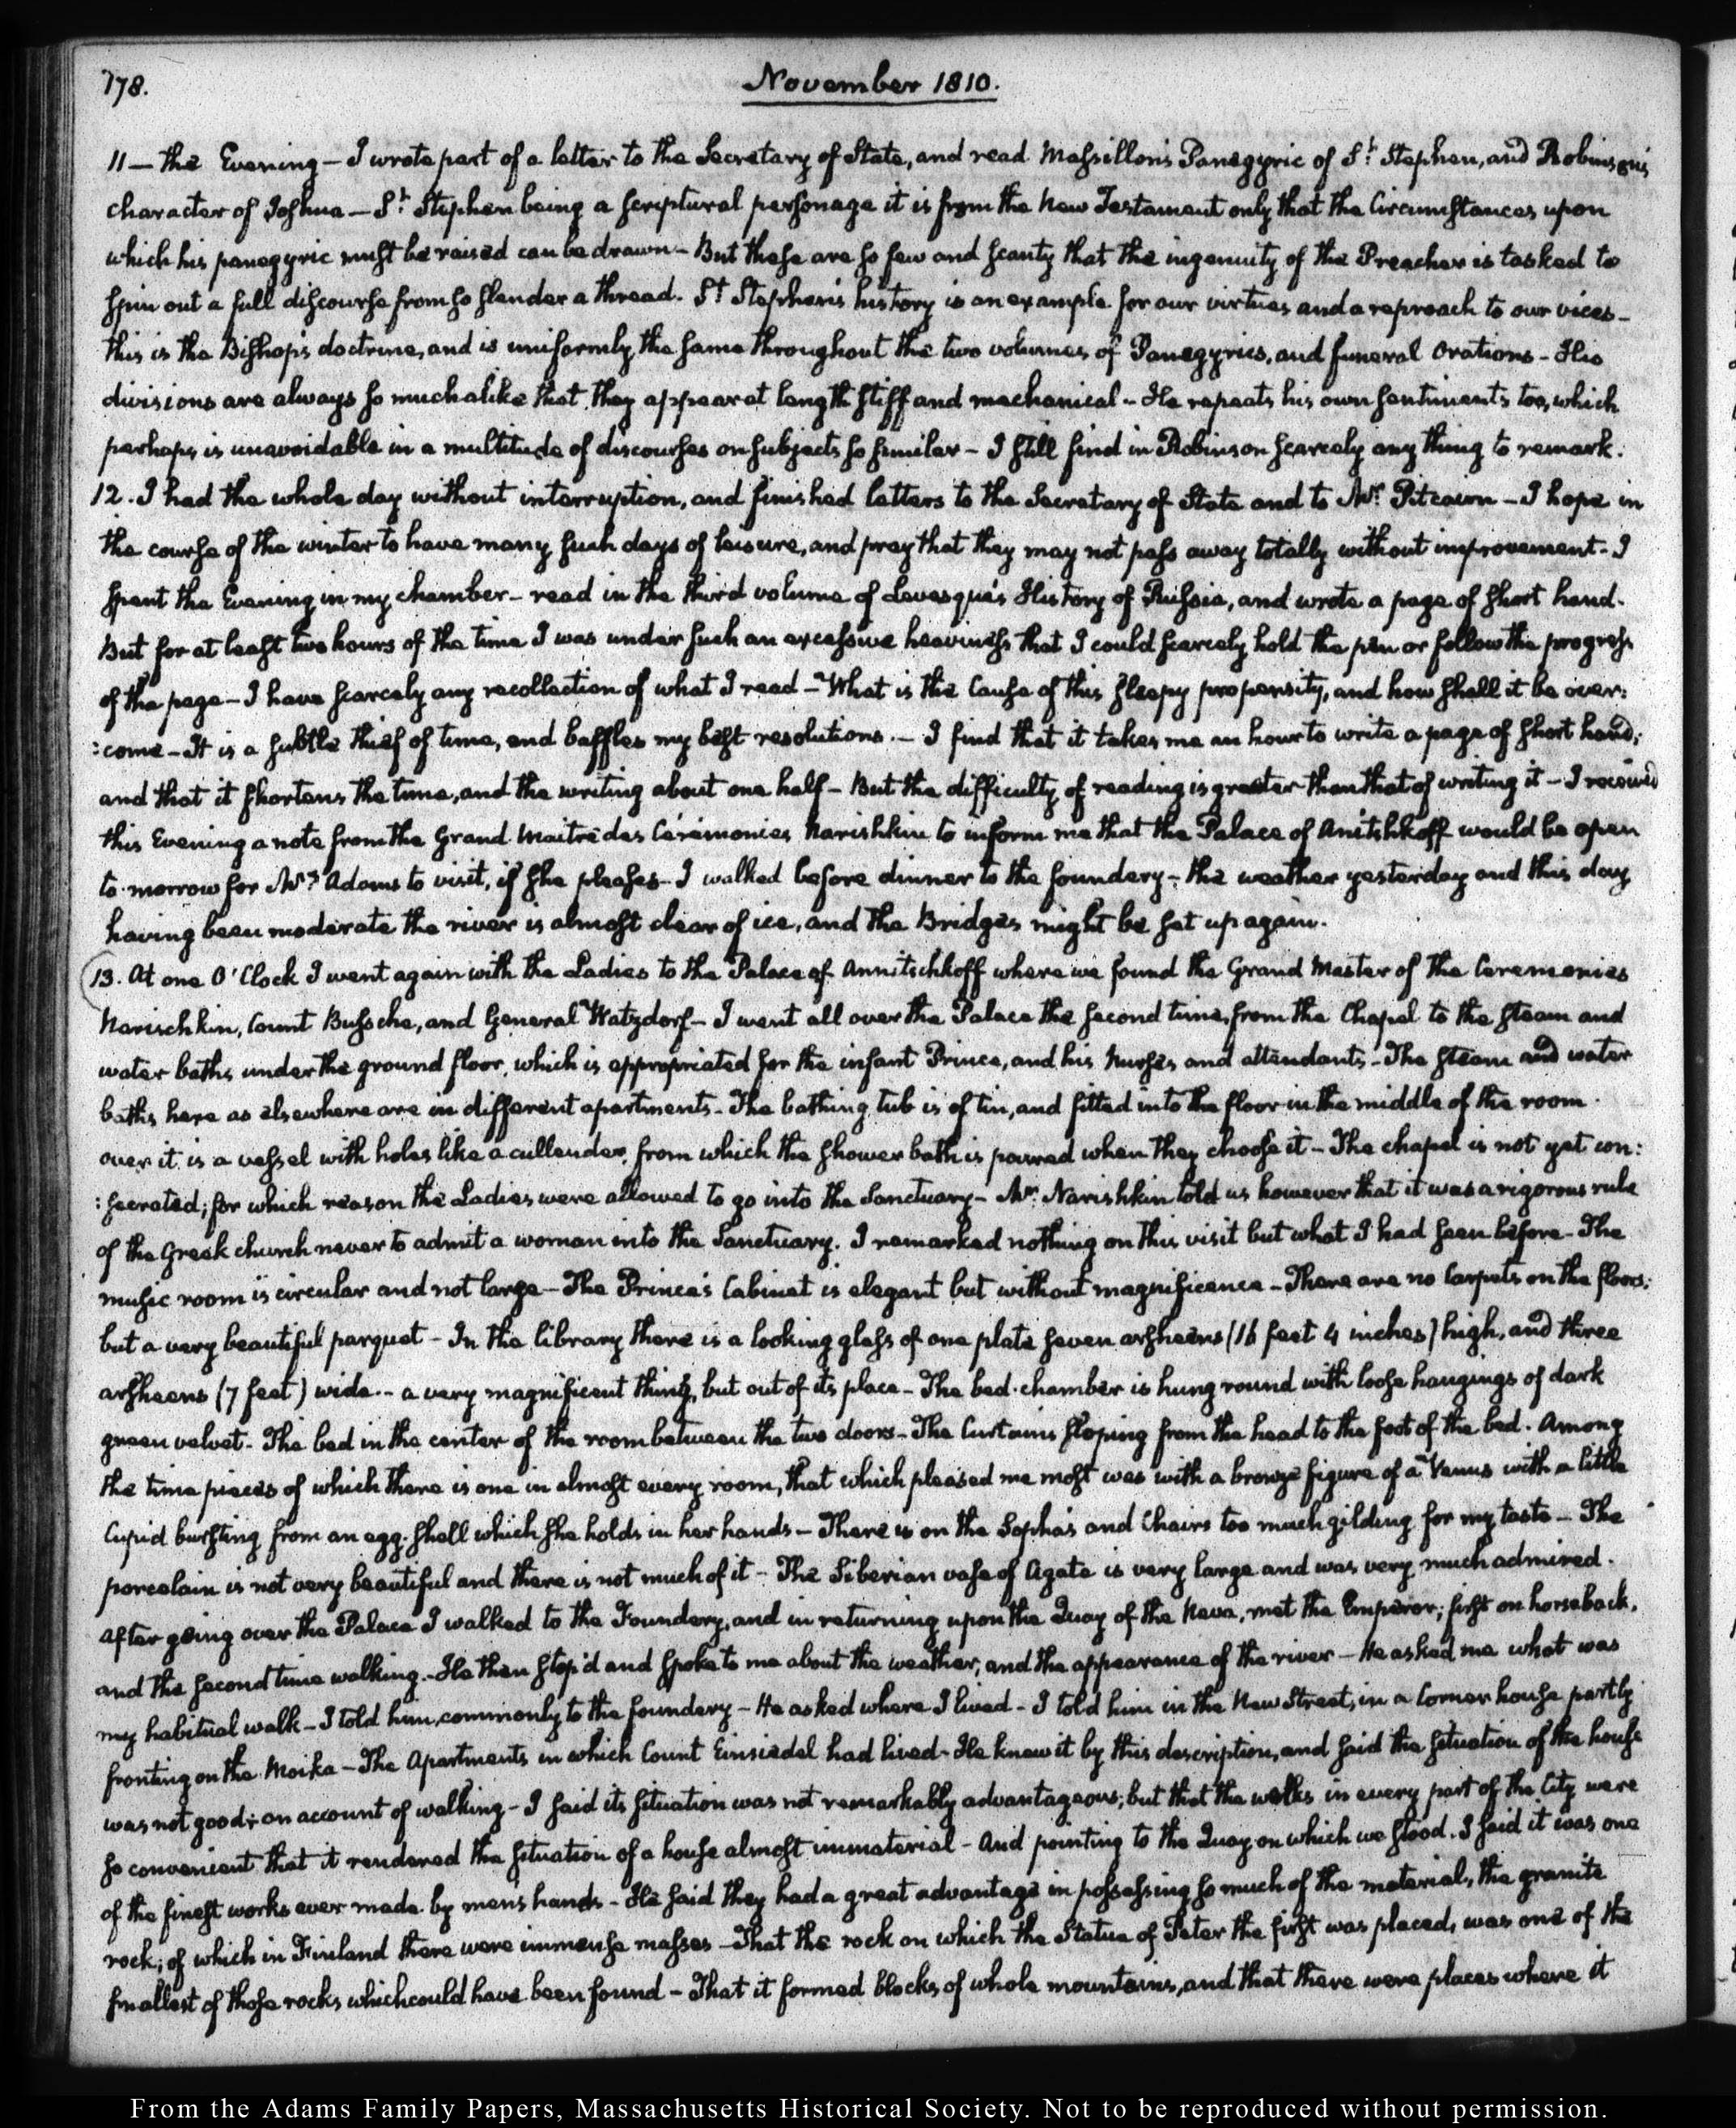 178.
November 1810.
11 — the Evening — I wrote part of a letter to the Secretary of State, and read Massillon's Panegyric of St. Stephen, and Robinson's
character of Joshua — St. Stephen being a scriptural personage it is from the New Testament only that the Circumstances upon
which his panegyric must be raised can be drawn — But these are so few and scanty that the ingenuity of the Preacher is tasked to
spin out a full discourse from so slender a thread. St. Stephen's history is an example for our virtues and a reproach to our vices —
this is the Bishop's doctrine, and is uniformly the same throughout the two volumes of Panegyrics, and funeral Orations — His
divisions are always so much alike that they appear at length stiff and mechanical — He repeats his own sentiments too, which
perhaps is unavoidable in a multitude of discourses on subjects so similar — I still find in Robinson scarcely any thing to remark.
12. I had the whole day without interruption, and finished letters to the Secretary of State and to Mr. Pitcairn — I hope in
the course of the winter to have many such days of leisure, and pray that they may not pass away totally without improvement — I
spent the Evening in my chamber — read in the third volume of Levesque's History of Russia, and wrote a page of short hand.
But for at least two hours of the time I was under such an excessive heaviness that I could scarcely hold the pen or follow the progress
of the page — I have scarcely any recollection of what I read — What is the Cause of this sleepy propensity, and how shall it be over:
:come — It is a subtle thief of time, and baffles my best resolutions. — I find that it takes me an hour to write a page of short hand,
and that it shortens the time, and the writing about one half — But the difficulty of reading is greater than that of writing it — I received
this Evening a note from the Grand Maitre des Cérémonies Narishkin to inform me that the Palace of Anitshkoff would be open
to-morrow for Mrs. Adams to visit, if she pleases — I walked before dinner to the foundery — the weather yesterday and this day
having been moderate the river is almost clear of ice, and the Bridges might be set up again.
13. At one O'Clock I went again with the Ladies to the Palace of Annitschkoff where we found the Grand Master of the Ceremonies
Narischkin, Count Bussche, and General Watzdorf — I went all over the Palace the second time, from the Chapel to the steam and
water baths under the ground floor, which is appropriated for the infant Prince, and his Nurses and attendants — The steam and water
baths here as elsewhere are in different apartments — The bathing tub is of tin, and fitted into the floor in the middle of the room.
over it is a vessel with holes like a cullender, from which the shower bath is poured when they choose it — The chapel is not yet con:
:secrated; for which reason the Ladies were allowed to go into the Sanctuary — Mr. Narishkin told us however that it was a rigorous rule
of the Greek church never to admit a woman into the Sanctuary. I remarked nothing on this visit but what I had seen before — The
music room is circular and not large — The Prince's Cabinet is elegant but without magnificence — There are no Carpets on the floors;
but a very beautiful parquet — In the library there is a looking glass of one plate seven arsheens (16 feet 4 inches) high, and three
arsheens (7 feet) wide — a very magnificent thing, but out of its place — The bed-chamber is hung round with loose hangings of dark
green velvet — The bed in the center of the room between the two doors — The Curtains sloping from the head to the foot of the bed. Among
the time pieces of which there is one in almost every room, that which pleased me most was with a bronze figure of a Venus with a little
Cupid bursting from an egg-shell which she holds in her hands — There is on the Sopha's and Chairs too much gilding for my taste — The
porcelain is not very beautiful and there is not much of it — The Siberian vase of Agate is very large and was very much admired.
After going over the Palace I walked to the Foundery, and in returning upon the Quay of the Neva, met the Emperor; first on horseback,
and the second time walking — He then stop'd and spoke to me about the weather, and the appearance of the river — He asked me what was
my habitual walk — I told him, commonly to the foundery — He asked where I lived — I told him in the New Street, in a Corner house partly
fronting on the Moika — The Apartments in which Count Einsiedel had lived — He knew it by this description, and said the situation of the house
was not good; on account of walking — I said its situation was not remarkably advantageous; but that the walks in every part of the City were
so convenient that it rendered the situation of a house almost immaterial — And pointing to the Quay on which we stood. I said it was one
of the finest works ever made by men's hands — He said they had a great advantage in possessing so much of the material, the granite
rock; of which in Finland there were immense masses — That the rock on which the Statue of Peter the first was placed, was one of the
smallest of those rocks which could have been found — That it formed blocks of whole mountains, and that there were places where it
From the Adams Family Papers, Massachusetts Historical Society. Not to be reproduced without permission.